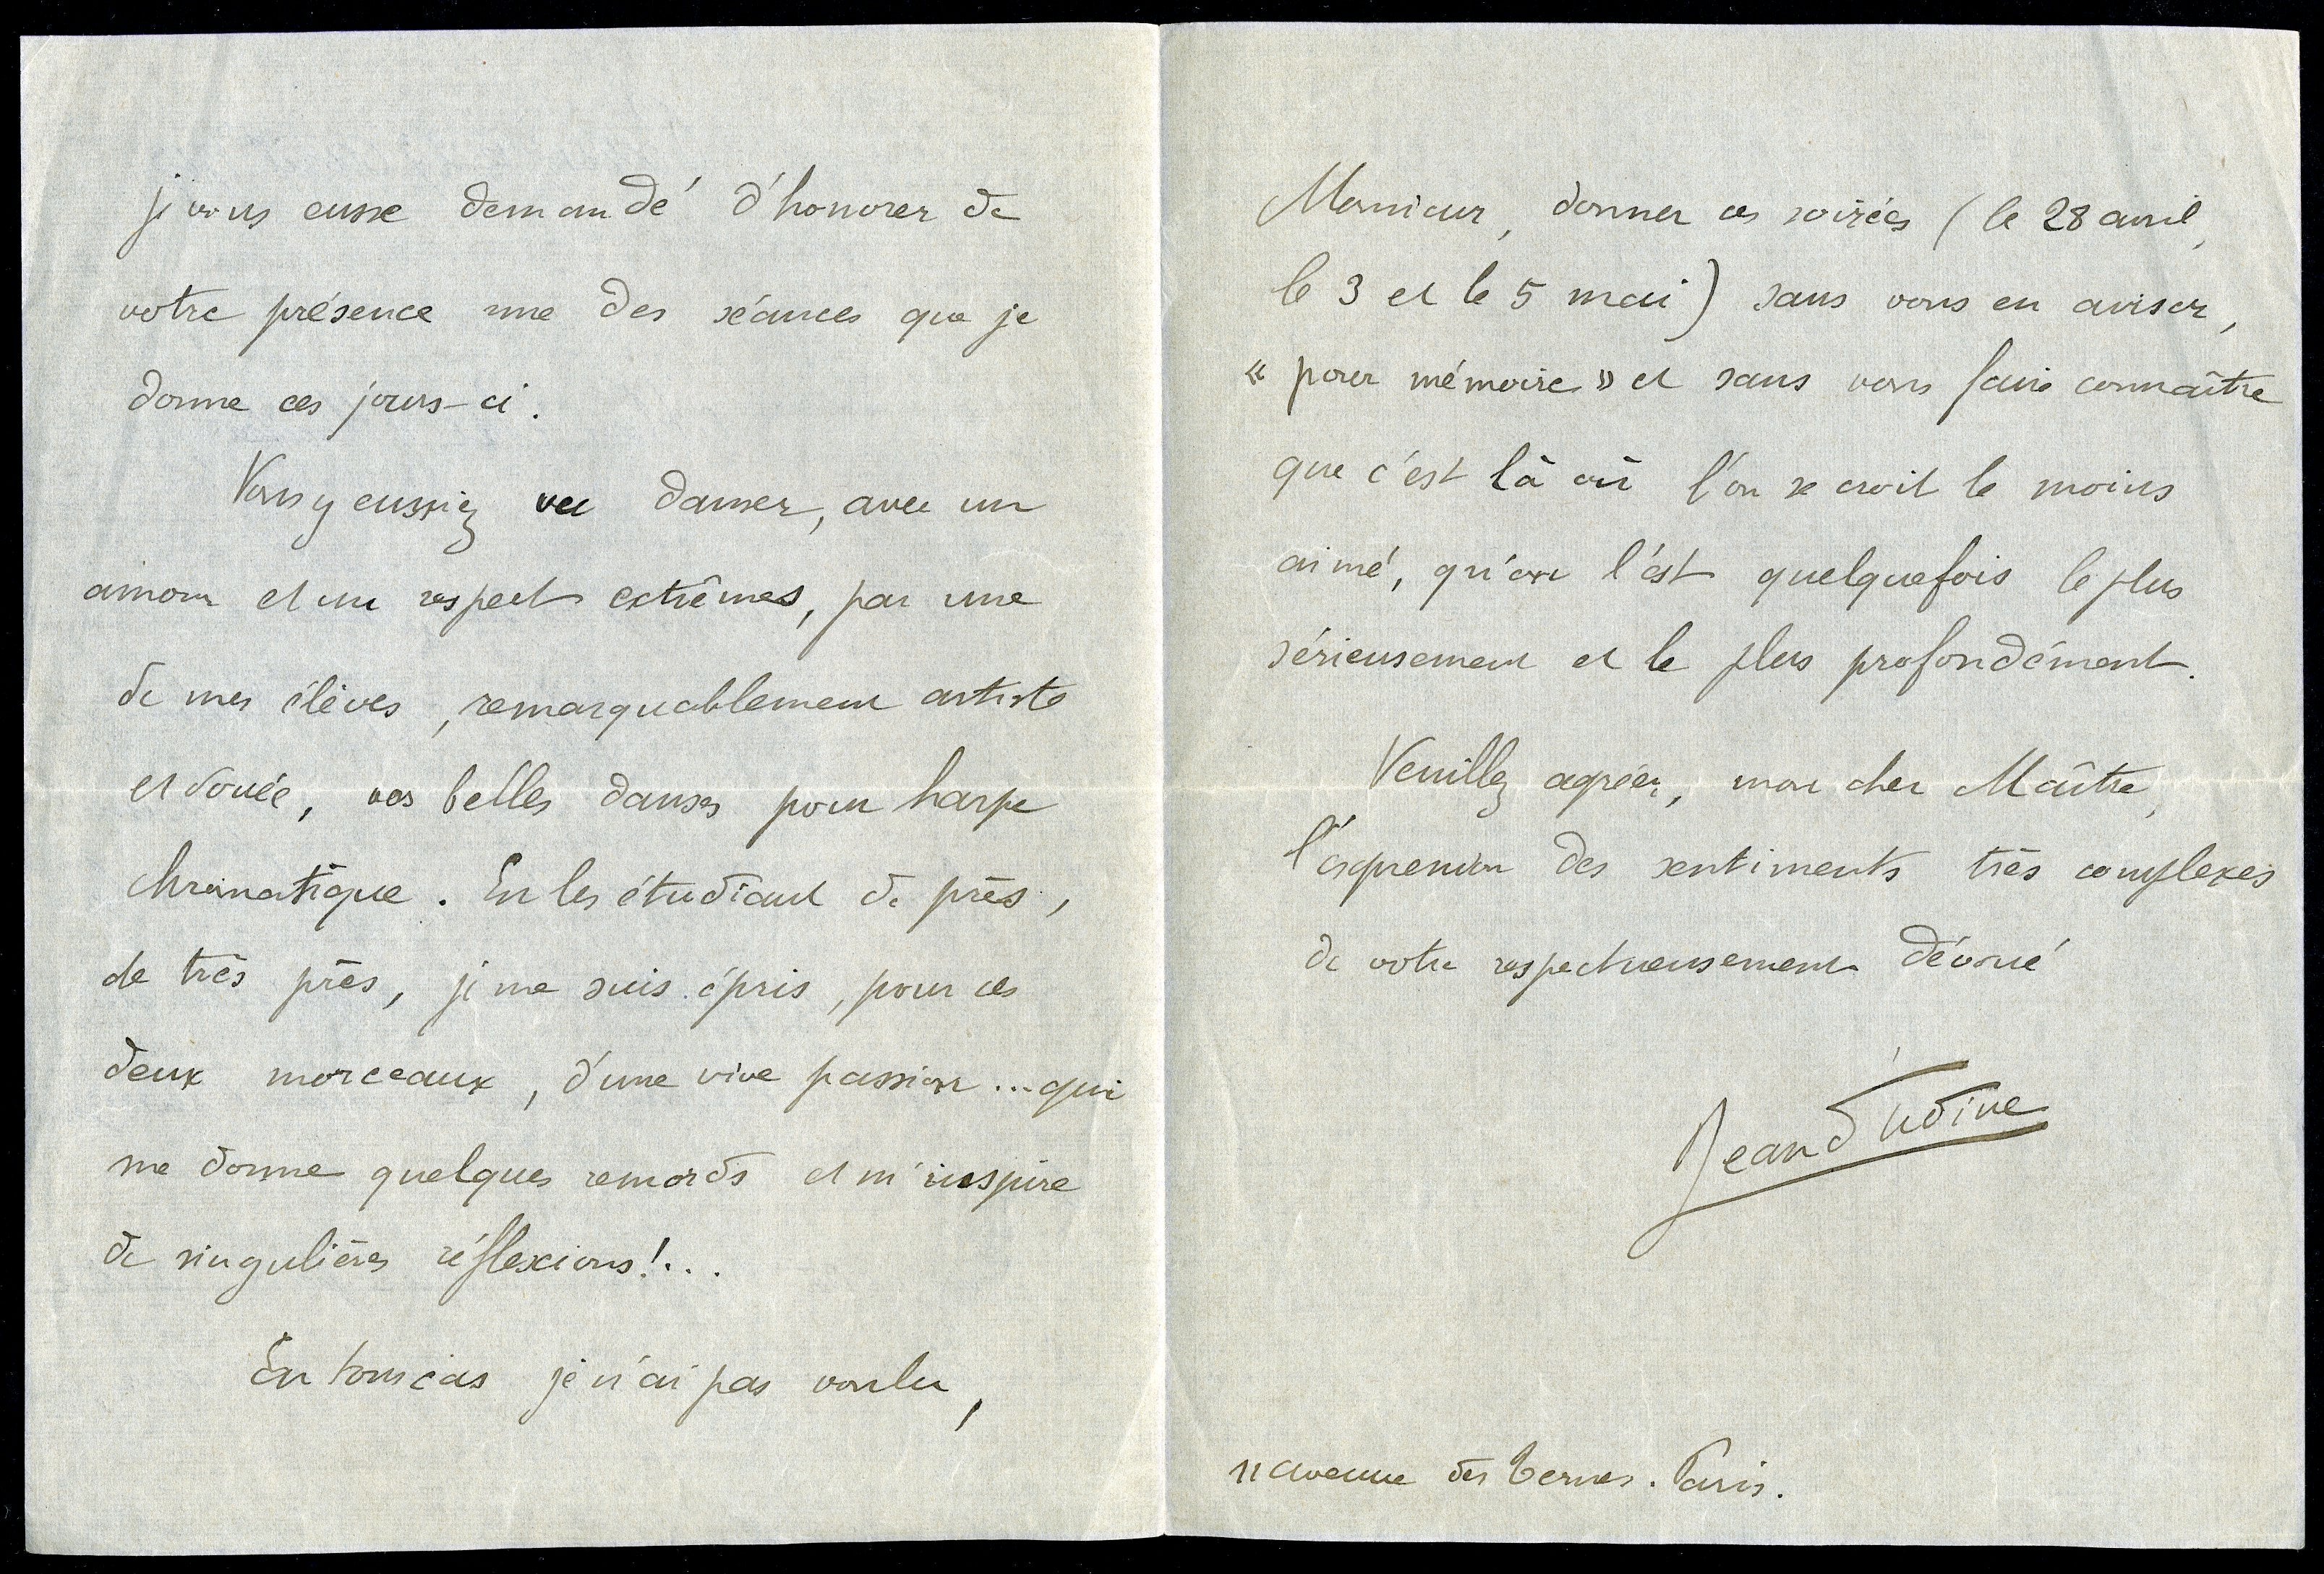 je vous eusse demandé d'honorer de
votre présence une des séances que je
donne ces jours-ci.
Vous y eussiez vu danser, avec un
amour et un respect extrêmes, par une
de mes élèves, remarquablement artiste
et douée, vos belles danses pour harpe
chromatique. En les étudiant de près,
de très près, je me suis épris, pour ces
deux morceaux, d'une vive passion... qui
me donne quelques remords et m'inspire
de singulières réflexions!...
En tous cas je n'ai pas voulu,
Monsieur, donner ces soirées (le 28 avril,
le 3 et le 5 mai) sans vous en aviser,
« pour mémoire » et sans vous faire connaître
que c'est là où l'on se croit le moins
aimé, qu'on l'est quelquefois le plus
sérieusement et le plus profondément.
Veuillez agréer, mon cher Maître,
l'expression des sentiments très complexes
de votre respectueusement dévoué
Jean d'Udine
11 avenue des Ternes. Paris.